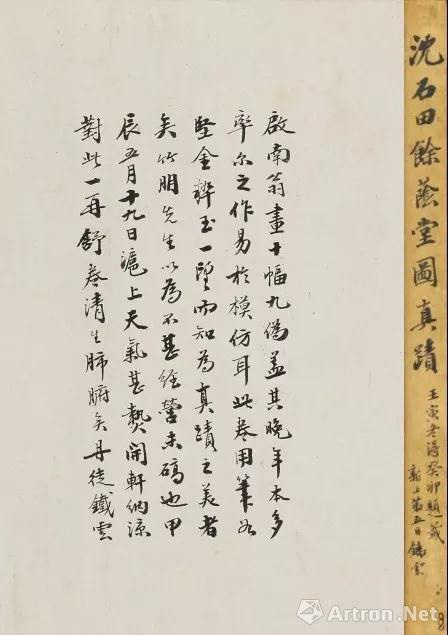 沈石田餘蔭堂圖真蹟
壬寅冬得癸卯題籤
新正第五日鐵雲
啟南翁畫十幅九偽蓋其晚年本多
率尔之作易於模仿耳此卷用筆如
堅金粹玉一望而知為真蹟之美者
矣竹朋先生以為不甚經營未碻也甲
辰五月十九日滬上天氣甚熱開軒納涼
對此一再舒卷清生肺腑矣丹徒鐵雲
Artron.Net